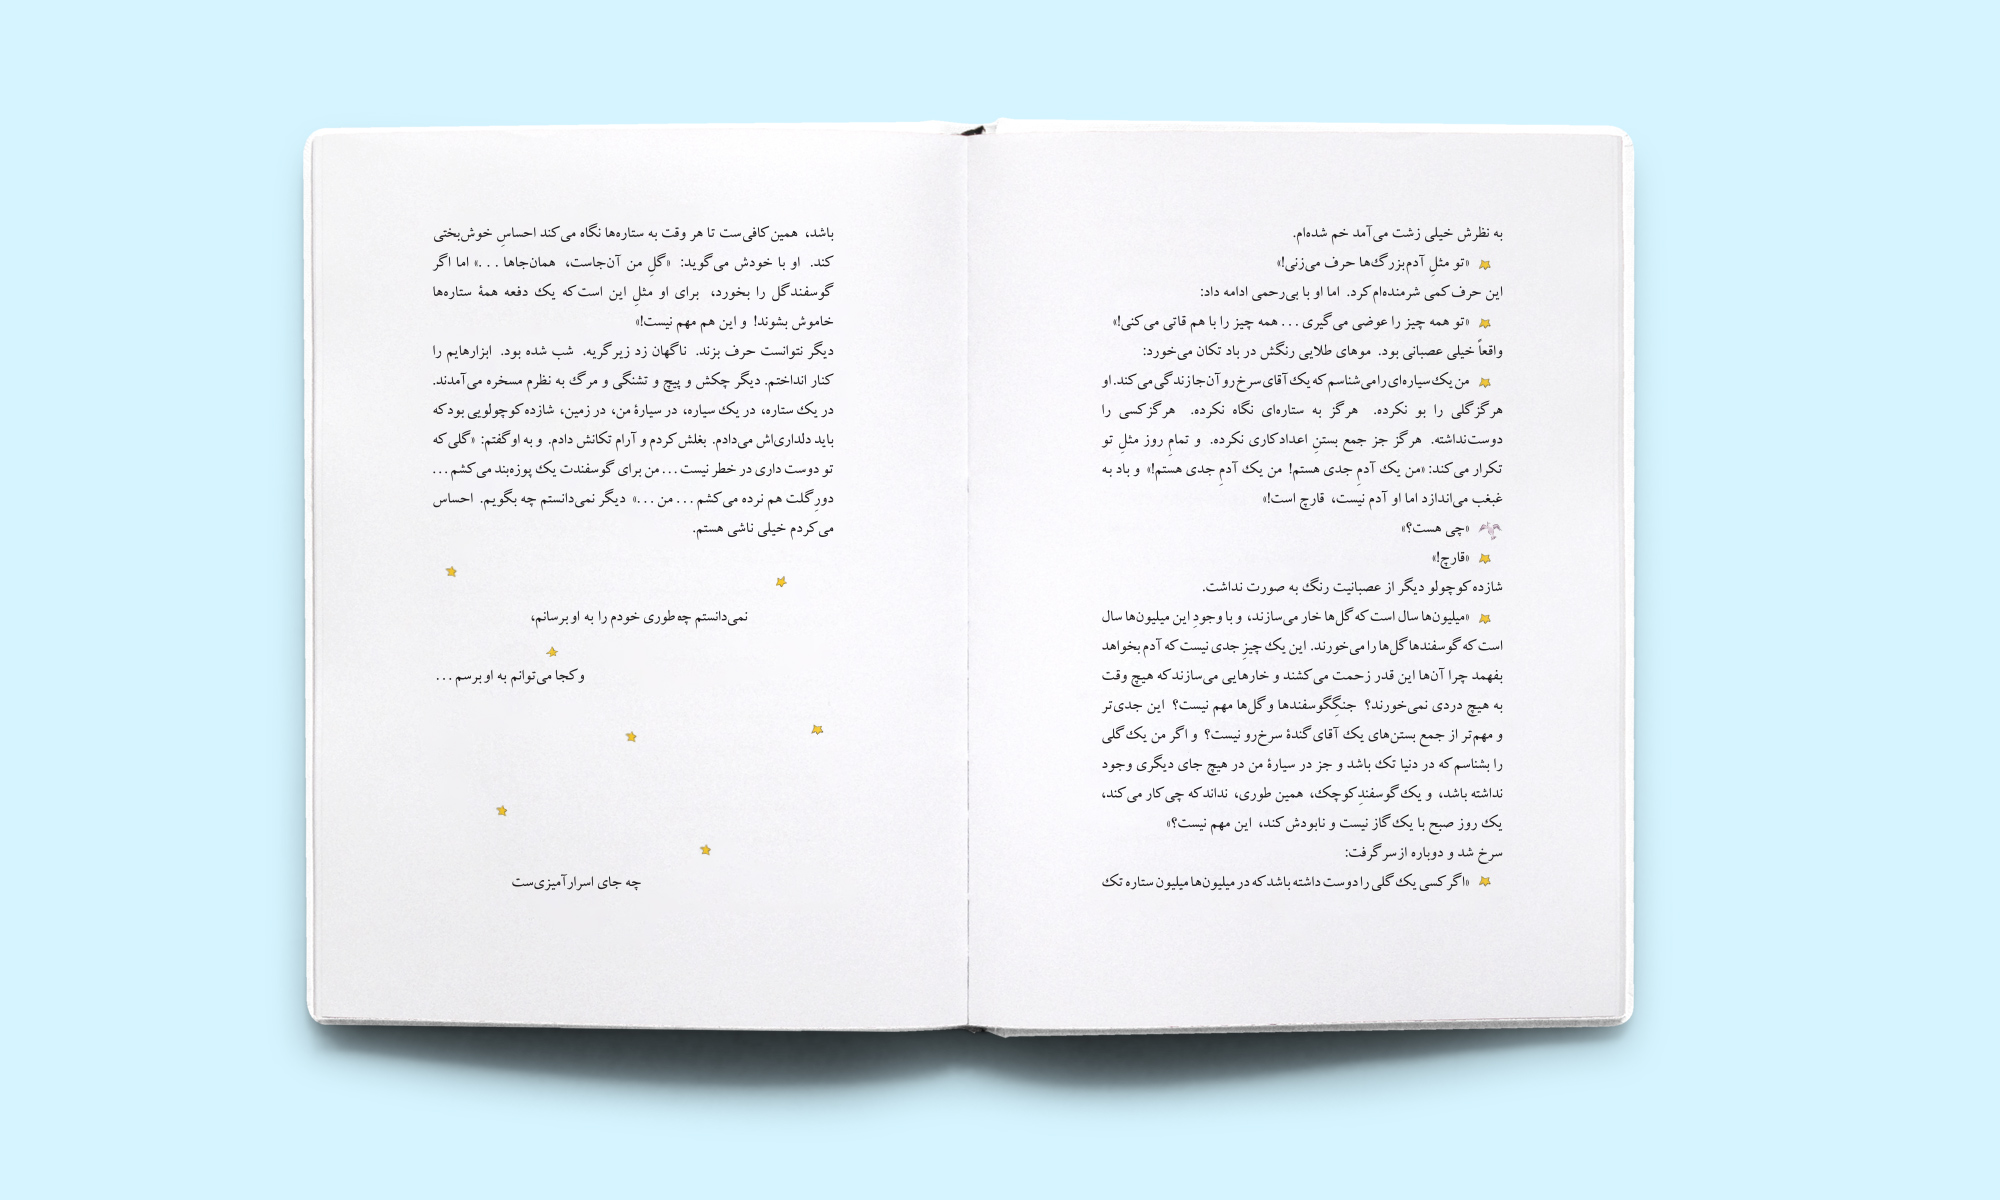 به نظرش خیلی زشت می‌آمد خم شده‌ام.
«تو مثلِ آدم‌بزرگ‌ها حرف می‌زنی!»
این حرف کمی شرمنده‌ام کرد. اما او با بی‌رحمی ادامه داد:
«تو همه چیز را عوضی می‌گیری . . . همه چیز را با هم قاتی می‌کنی!»
واقعاً خیلی عصبانی بود. موهای طلایی رنگش در باد تکان می‌خورد:
من یک سیاره‌ای را می‌شناسم که یک آقای سرخ‌رو آن جا زندگی می‌کند. او
هرگز گلی را بو نکرده. هرگز به ستاره‌ای نگاه نکرده. هرگز کسی را
دوست نداشته. هرگز جز جمع بستنِ اعداد کاری نکرده. و تمامِ روز مثلِ تو
تکرار می‌کند: «من یک آدمِ جدی هستم! من یک آدمِ جدی هستم!» و باد به
غبغب می‌اندازد اما او آدم نیست، قارچ است!»
«چی هست؟»
«قارچ!»
شازده کوچولو دیگر از عصبانیت رنگ به صورت نداشت.
«میلیون‌ها سال است که گل‌ها خار می‌سازند، و با وجودِ این میلیون‌ها سال
است که گوسفندها گل‌ها را می‌خورند. این یک چیزِ جدی نیست که آدم بخواهد
بفهمد چرا آن‌ها این قدر زحمت می‌کشند و خارهایی می‌سازند که هیچ وقت
به هیچ دردی نمی‌خورند؟ جنگِ گوسفندها و گل‌ها مهم نیست؟ این جدی‌تر
و مهم‌تر از جمع بستن‌های یک آقای گندهٔ سرخ‌رو نیست؟ و اگر من یک گلی
را بشناسم که در دنیا تک باشد و جز در سیارهٔ من در هیچ جای دیگری وجود
نداشته باشد، و یک گوسفندِ کوچک، همین طوری، نداند که چی کار می‌کند،
یک روز صبح با یک گاز نیست و نابودش کند، این مهم نیست؟»
سرخ شد و دوباره از سر گرفت:
«اگر کسی یک گلی را دوست داشته باشد که در میلیون‌ها میلیون ستاره تک
باشد، همین کافی‌ست تا هر وقت به ستاره‌ها نگاه می‌کند احساسِ خوش‌بختی
کند. او با خودش می‌گوید: «گلِ من آن‌جاست، همان‌جاها . . .» اما اگر
گوسفند گل را بخورد، برای او مثلِ این است که یک دفعه همهٔ ستاره‌ها
خاموش بشوند! و این هم مهم نیست!»
دیگر نتوانست حرف بزند. ناگهان زد زیر گریه. شب شده بود. ابزارهایم را
کنار انداختم. دیگر چکش و پیچ و تشنگی و مرگ به نظرم مسخره می‌آمدند.
در یک ستاره، در یک سیاره، در سیارهٔ من، در زمین، شازده کوچولویی بود که
باید دلداری‌اش می‌دادم. بغلش کردم و آرام تکانش دادم. و به او گفتم: «گلی که
تو دوست داری در خطر نیست . . . من برای گوسفندت یک پوزه‌بند می‌کشم . . .
دورِ گلت هم نرده می‌کشم . . . من . . .» دیگر نمی‌دانستم چه بگویم. احساس
می‌کردم خیلی ناشی هستم.
نمی‌دانستم چه طوری خودم را به او برسانم،
و کجا می‌توانم به او برسم . . .
چه جای اسرارآمیزی‌ست